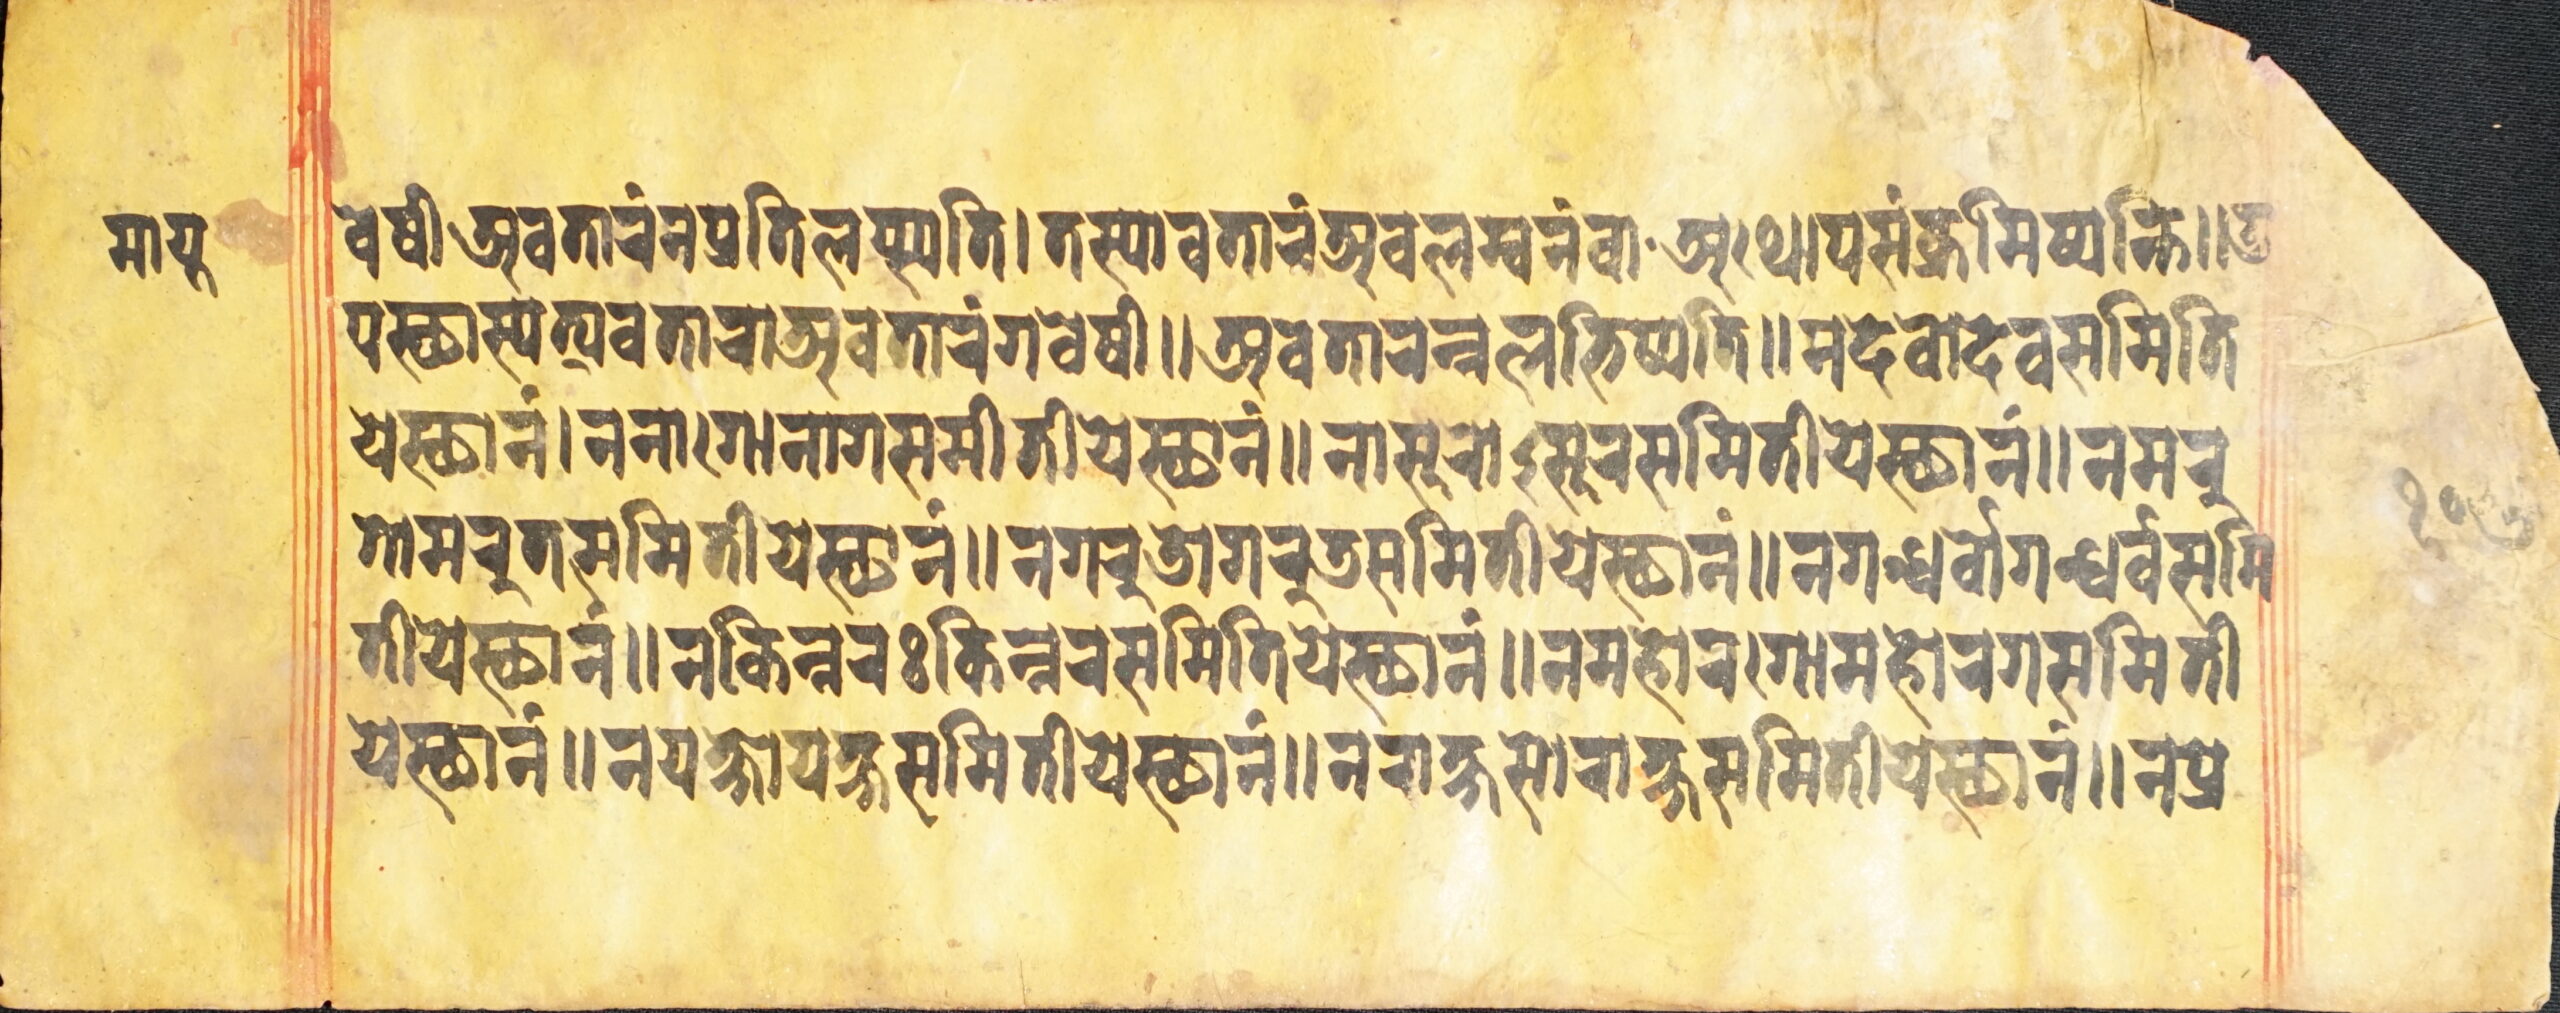 मायू
वेषी अवतारंनप्रतिलप्स्यति। तस्यावतारंअवलम्बनंवा·अथोपसंक्रमिष्यन्ति॥उ
पस्थास्यत्यवतारोअवतारंगवेषी॥अवतारन्नलभिष्यति॥नदेवोदेवसमिति
येस्थानं।ननागोनागसमीतीयेस्थानं॥नासुरोऽसुरसमितीयेस्थानं॥नमरु
तोमरुतसमितीयेस्थानं॥नगरुडोगरुडसमितीयेस्थानं॥नगन्धर्वोगन्धर्वसमि
तीयेस्थानं॥नकिन्नरःकिन्नरसमितियेस्थानं॥नमहोरगोमहोरगसमिती
येस्थानं॥नयक्षोयक्षसमितीयेस्थानं॥नराक्षसोराक्षसमितीयेस्थानं॥नप्रे